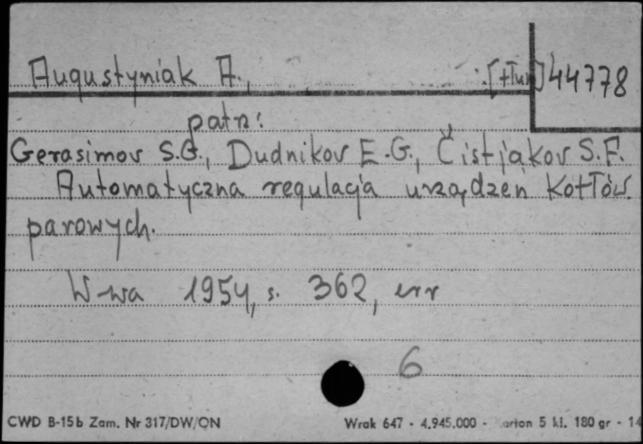 Augustyniak A., [tłum] 44778
patrz:
Gerasimov S.G., Dudnikov E.G., Čistjakov S.F.
Automatyczna regulacja urządzeń kotłów
parowych.
W-wa 1954, s. 362, err
6
CWD B-15b Zam. Nr 317/DW/ON Wrak 647 - 4.945.000 - Karton 5 kl. 180 gr - 14